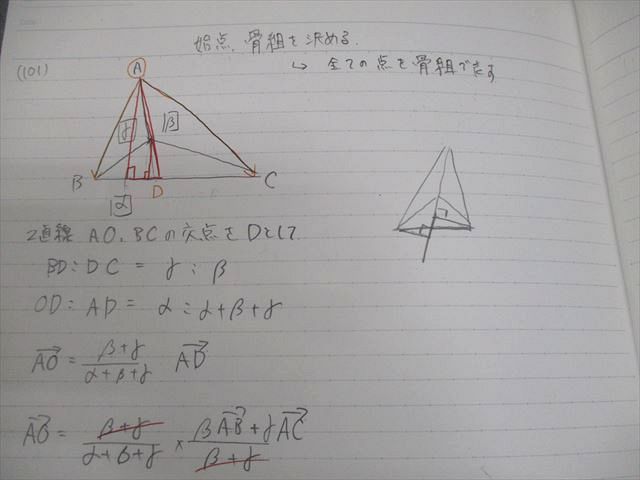 始点、骨組を決める.
(101)
↳ 全ての点を骨組で表す
A
γ
β
B
D
C
α
2直線 AO, BCの交点をDとして
BD:DC = γ:β
OD:AD = α:α+β+γ
AO→ = (β+γ)/(α+β+γ) AD→
AO→ = (β+γ)/(α+β+γ) × (βAB→+γAC→)/(β+γ)